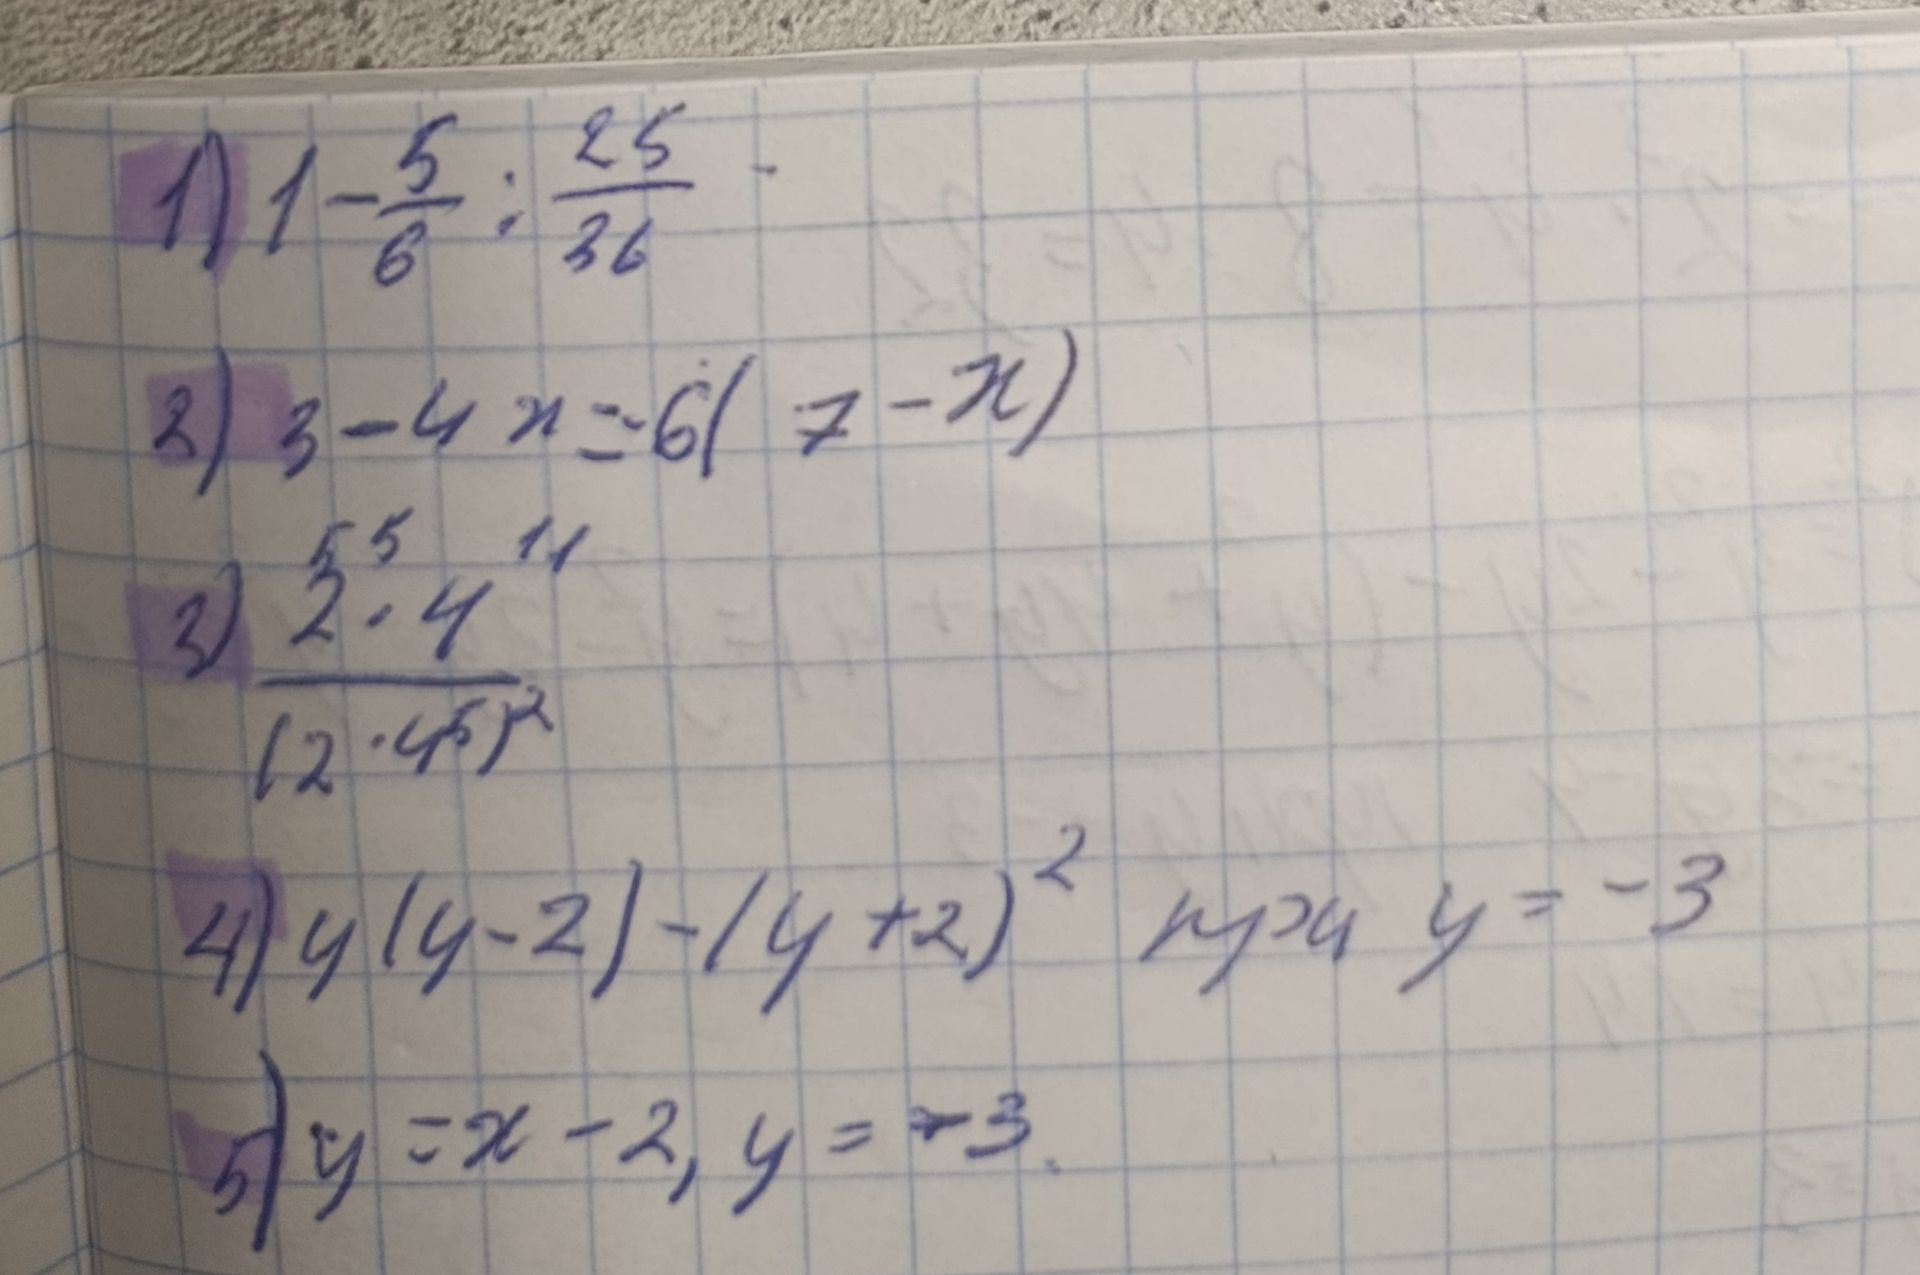 1) 1 - 5/6 : 25/36
2) 3 - 4x = 6(7 - x)
3) 2⁵⁵ · 4¹¹ / (2 · 4⁵)²
4) y(y - 2) - (y + 2)² при y = -3
5) y = x - 2, y = -3.